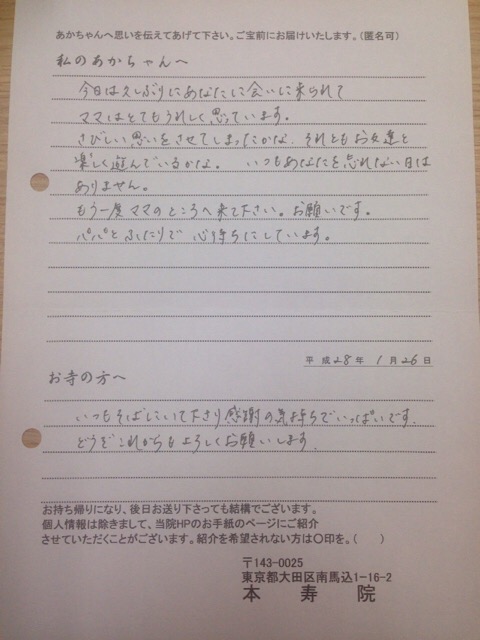 あかちゃんへ思いを伝えてあげて下さい。ご宝前にお届けいたします。(匿名可)
私のあかちゃんへ
今日は久しぶりにあなたに会いに来られて
ママはとてもうれしく思っています。
さびしい思いをさせてしまったかな、それともお友達と
楽しく遊んでいるかな。 いつもあなたを忘れない日は
ありません。
もう一度ママのところへ来て下さい。お願いです。
パパとふたりで 心待ちにしています。
平成28年 1月26日
お寺の方へ
いつもそばにいて下さり感謝の気持ちでいっぱいです。
どうぞこれからもよろしくお願いします。
お持ち帰りになり、後日お送り下さっても結構でございます。
個人情報は除きまして、当院HPのお手紙のページにご紹介
させていただくことがございます。紹介を希望されない方は〇印を。( )
〒143-0025
東京都大田区南馬込1-16-2
本 寿 院